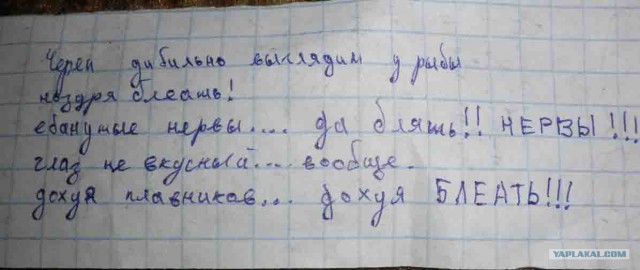 Череп дибильно выглядит у рыбы
ноздря блеать!
ебанутые нервы.... да блять!! НЕРВЫ!!!
глаз не вкусный... вообще.
дохуя плавников... дохуя БЛЕАТЬ!!!
YAPLAKAL.COM